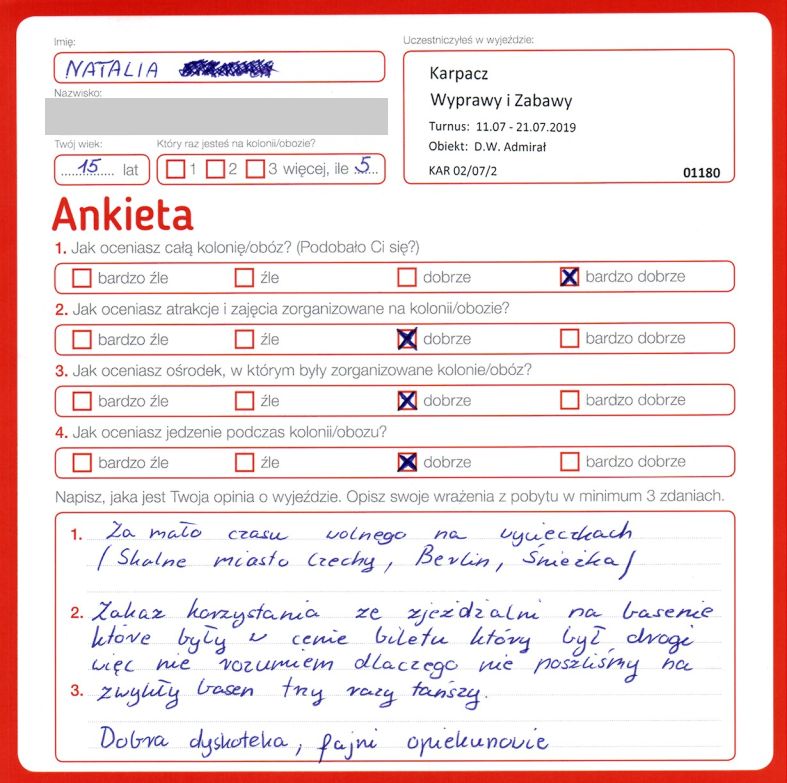 Imię:
Uczestniczyłeś w wyjeździe:
NATALIA
Nazwisko:
Karpacz
Wyprawy i Zabawy
Turnus: 11.07 - 21.07.2019
Obiekt: D.W. Admirał
KAR 02/07/2
01180
Twój wiek:
Który raz jesteś na kolonii/obozie?
15 lat
1 2 3 więcej, ile 5
Ankieta
1. Jak oceniasz całą kolonię/obóz? (Podobało Ci się?)
bardzo źle źle dobrze bardzo dobrze
2. Jak oceniasz atrakcje i zajęcia zorganizowane na kolonii/obozie?
bardzo źle źle dobrze bardzo dobrze
3. Jak oceniasz ośrodek, w którym były zorganizowane kolonie/obóz?
bardzo źle źle dobrze bardzo dobrze
4. Jak oceniasz jedzenie podczas kolonii/obozu?
bardzo źle źle dobrze bardzo dobrze
Napisz, jaka jest Twoja opinia o wyjeździe. Opisz swoje wrażenia z pobytu w minimum 3 zdaniach.
1. Za mało czasu wolnego na wycieczkach
(Skalne miasto Czechy, Berlin, Śnieżka)
2. Zakaz korzystania ze zjeżdżalni na basenie
które były w cenie biletu który był drogi
więc nie rozumiem dlaczego nie poszliśmy na
3. zwykły basen trzy razy tańszy.
Dobra dyskoteka, fajni opiekunowie